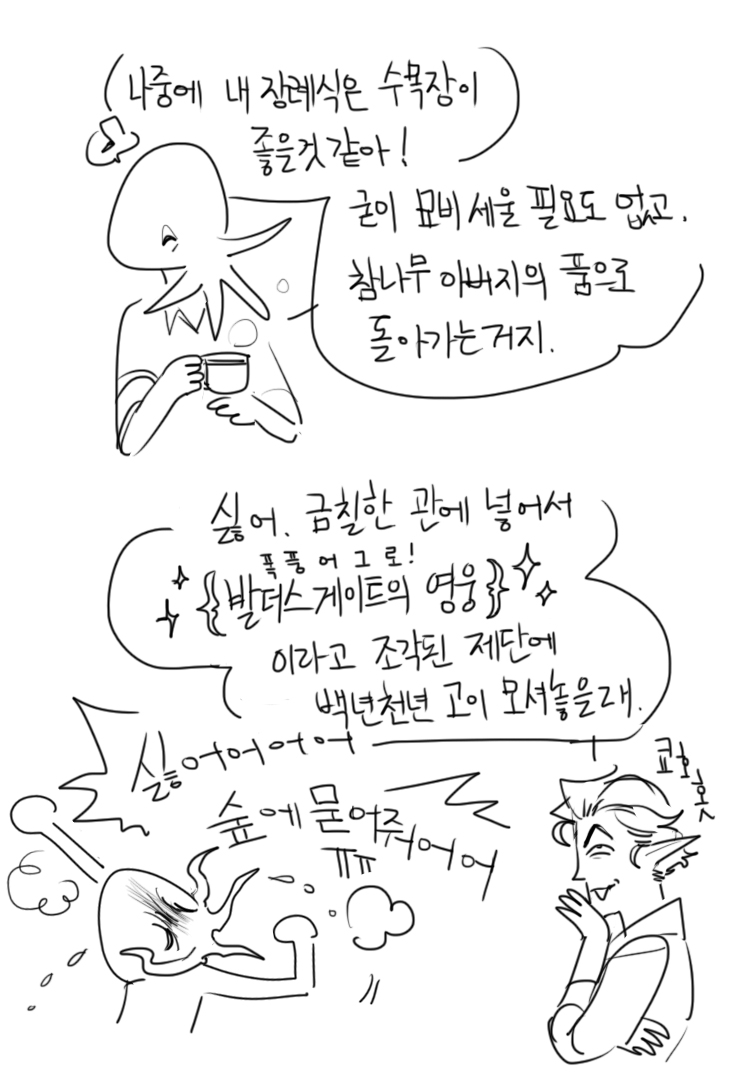 나중에 내 장례식은 수목장이
좋을것 같아!
굳이 묘비 세울 필요도 없고.
참나무 아버지의 품으로
돌아가는거지.
싫어. 금칠한 관에 넣어서
폭풍어그로!
{발더스게이트의 영웅}
이라고 조각된 제단에
백년천년 고이 모셔놓을래.
싫어어어어
숲에 묻어줘어어
ㅠㅠ
쿄호홋